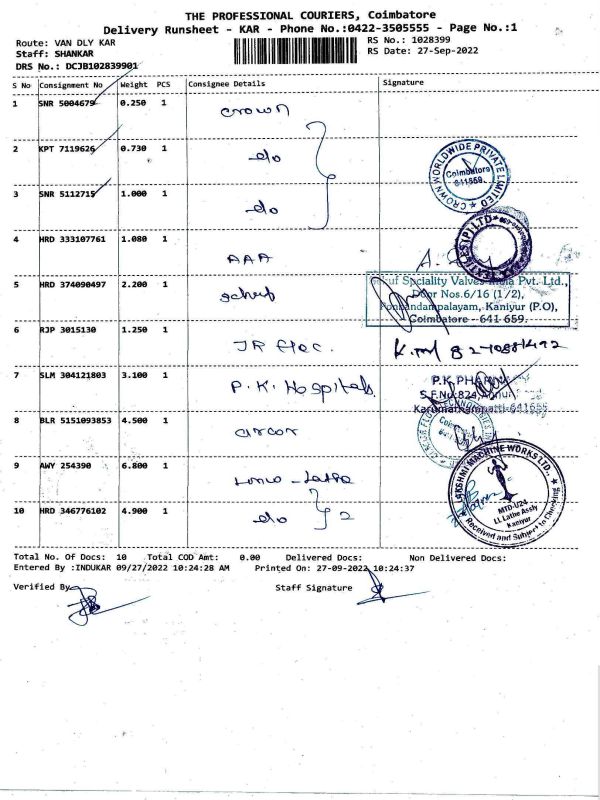 THE PROFESSIONAL COURIERS, Coimbatore
Delivery Runsheet - KAR - Phone No.:0422-3505555 - Page No.:1
Route: VAN DLY KAR
RS No.: 1028399
Staff: SHANKAR
RS Date: 27-Sep-2022
DRS No.: DCJB102839901
S No Consignment No Weight PCS Consignee Details Signature
1 SNR 5004679 0.250 1 crown
2 KPT 7119626 0.730 1 do
3 SNR 5112715 1.000 1 do
CROWN WORLDWIDE PRIVATE LIMITED
Coimbatore
641659
4 HRD 333107761 1.080 1 AAA
5 HRD 374090497 2.200 1
Speciality Valves India Pvt. Ltd.,
Door Nos.6/16 (1/2),
Kaniyur (P.O),
Coimbatore - 641 659.
6 RJP 3015130 1.250 1 JR Elec.
7 SLM 304121803 3.100 1 P.K. Hospitals
P.K PHARMA
S.F.No:824,
Karumathampatti-641659
8 BLR 5151093853 4.500 1 arcor
9 AWY 254390 6.800 1
LAKSHMI MACHINE WORKS LTD.,
MTD-U24
LL Lathe Assly
Kaniyur
Received and Subject to Checking
10 HRD 346776102 4.900 1 do } 2
Total No. Of Docs: 10 Total COD Amt: 0.00 Delivered Docs: Non Delivered Docs:
Entered By :INDUKAR 09/27/2022 10:24:28 AM Printed On: 27-09-2022 10:24:37
Verified By Staff Signature